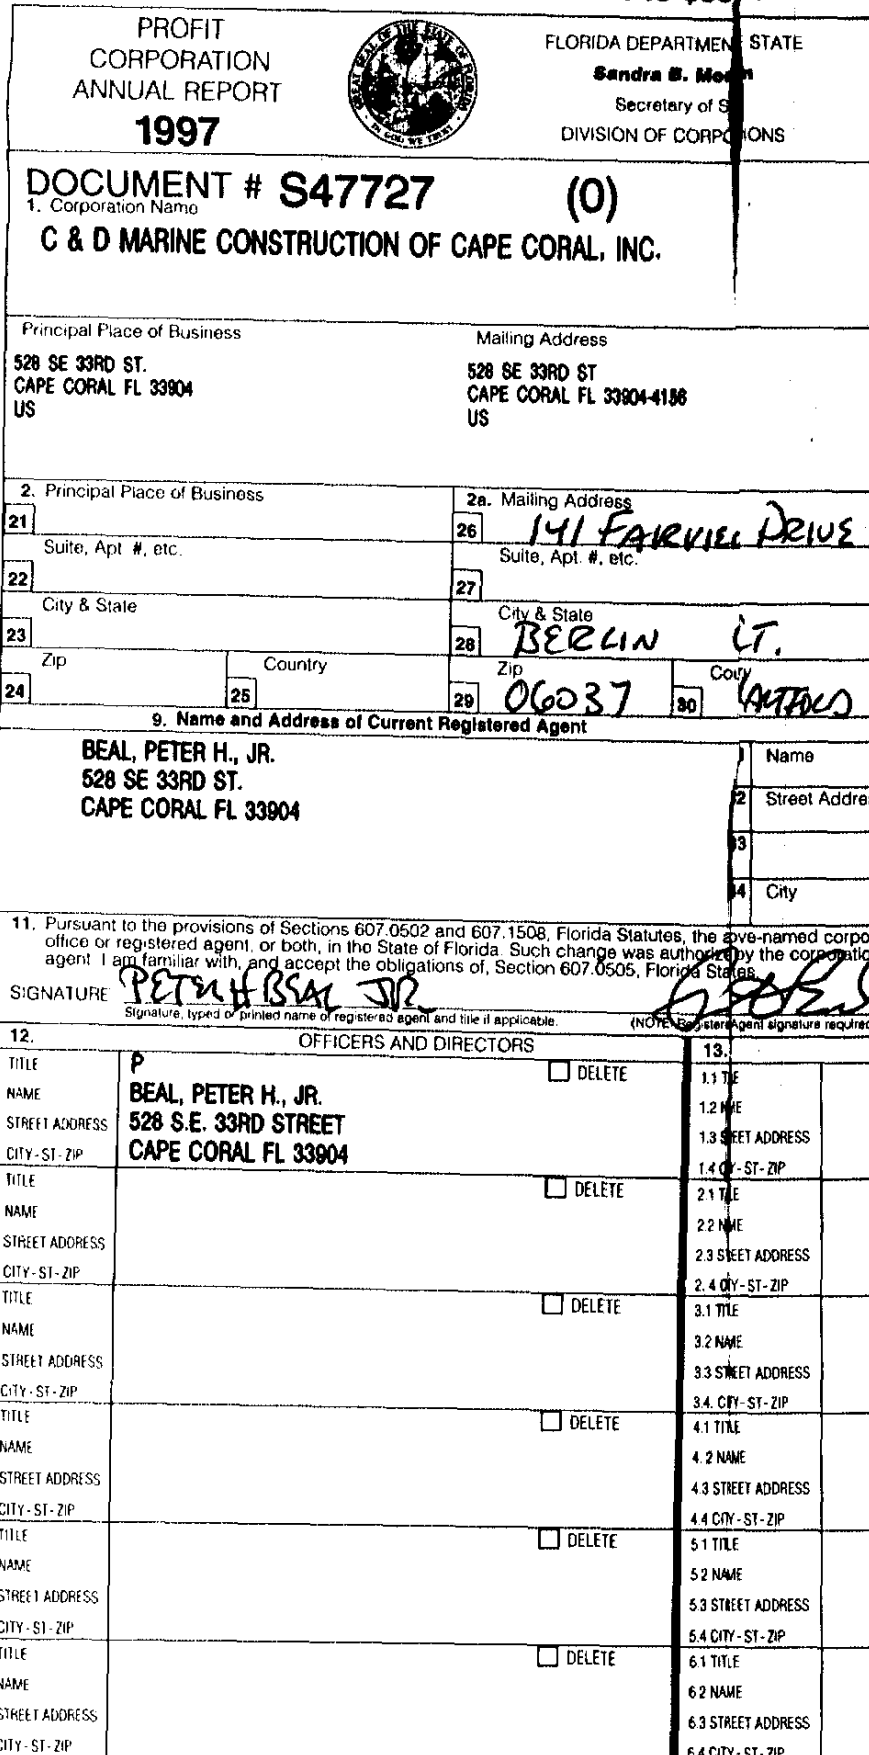 PROFIT
CORPORATION
ANNUAL REPORT
1997
GREAT SEAL OF THE STATE OF FLORIDA
IN GOD WE TRUST
FLORIDA DEPARTMEN STATE
Sandra B. Mo
Secretary of S
DIVISION OF CORPO IONS
DOCUMENT # S47727 (0)
1. Corporation Name
C & D MARINE CONSTRUCTION OF CAPE CORAL, INC.
Principal Place of Business
528 SE 33RD ST.
CAPE CORAL FL 33904
US
Mailing Address
528 SE 33RD ST
CAPE CORAL FL 33904-4156
US
2. Principal Place of Business
21
Suite, Apt #, etc.
22
City & State
23
Zip
24
Country
25
2a. Mailing Address
26 141 FAIRVIEW DRIVE
Suite, Apt. #, etc.
27
City & State
28 BERLIN CT.
Zip
29 06037
30
9. Name and Address of Current Registered Agent
BEAL, PETER H., JR.
528 SE 33RD ST.
CAPE CORAL FL 33904
Name
Street Addre
City
11. Pursuant to the provisions of Sections 607.0502 and 607.1508, Florida Statutes, the ove-named corpo
office or registered agent, or both, in the State of Florida. Such change was authorize by the corporatio
agent I am familiar with, and accept the obligations of, Section 607.0505, Florida States
SIGNATURE PETER H BEAL JR
Signature, typed or printed name of registered agent and title if applicable.
(NOTE Register Agent signature required
12. OFFICERS AND DIRECTORS
13.
TITLE P DELETE
NAME BEAL, PETER H., JR.
STREET ADDRESS 528 S.E. 33RD STREET
CITY-ST-ZIP CAPE CORAL FL 33904
1.1 TLE
1.2 ME
1.3 EET ADDRESS
1.4 Y-ST-ZIP
TITLE DELETE
NAME
STREET ADDRESS
CITY-ST-ZIP
2.1 TLE
2.2 NME
2.3 STEET ADDRESS
2.4 CIY-ST-ZIP
TITLE DELETE
NAME
STREET ADDRESS
CITY-ST-ZIP
3.1 TITLE
3.2 NAME
3.3 STREET ADDRESS
3.4. CITY-ST-ZIP
TITLE DELETE
NAME
STREET ADDRESS
CITY-ST-ZIP
4.1 TITLE
4.2 NAME
4.3 STREET ADDRESS
4.4 CITY-ST-ZIP
TITLE DELETE
NAME
STREET ADDRESS
CITY-ST-ZIP
5.1 TITLE
5.2 NAME
5.3 STREET ADDRESS
5.4 CITY-ST-ZIP
TITLE DELETE
NAME
STREET ADDRESS
CITY-ST-ZIP
6.1 TITLE
6.2 NAME
6.3 STREET ADDRESS
6.4 CITY-ST-ZIP